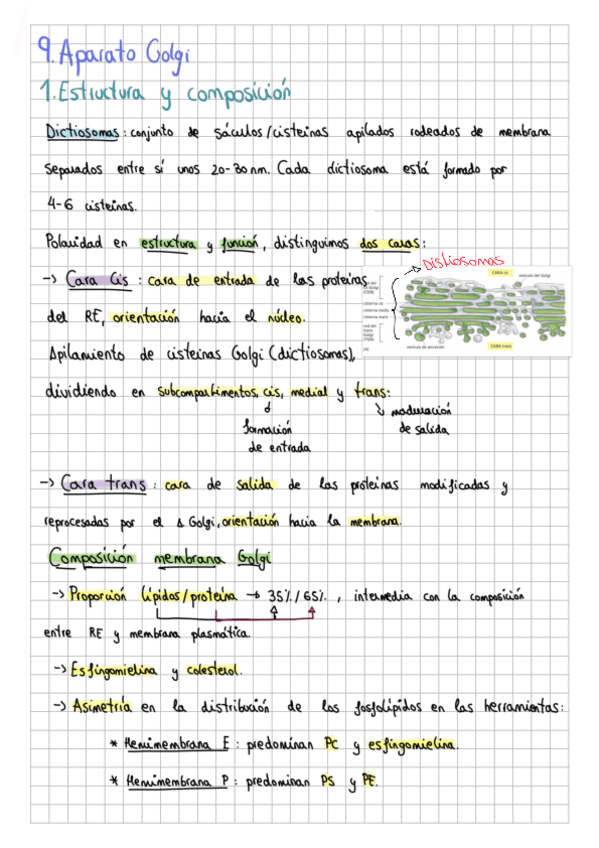 9. Aparato Golgi
1. Estructura y composición
Dictiosomas: conjunto de sáculos/cisteinas apilados rodeados de membrana
separados entre sí unos 20-30nm. Cada dictiosoma está formado por
4-6 cisteinas.
Polaridad en estructura y función, distinguimos dos caras:
→ Distiosomas
→ Cara Cis : cara de entrada de las proteinas
CARA cis
vesícula del Golgi
cisterna cis
cisterna media
cisterna trans
del RE, orientación hacia el núcleo.
Apilamiento de cisteinas Golgi (dictiosomas),
vesícula de secreción
CARA trans
dividiendo en subcompartimentos, cis, medial y trans:
formación
de entrada
maduración
de salida
→ Cara trans : cara de salida de las proteinas modificadas y
reprocesadas por el Golgi, orientación hacia la membrana.
Composición membrana Golgi
→ Proporción lípidos/proteína → 35%/65%, intermedia con la composición
entre RE y membrana plasmática.
→ Esfingomielina y colesterol.
→ Asimetría en la distribución de los fosfolípidos en las herramientas:
* Hemimembrana E : predominan PC y esfingomielina.
* Hemimembrana P : predominan PS y PE.